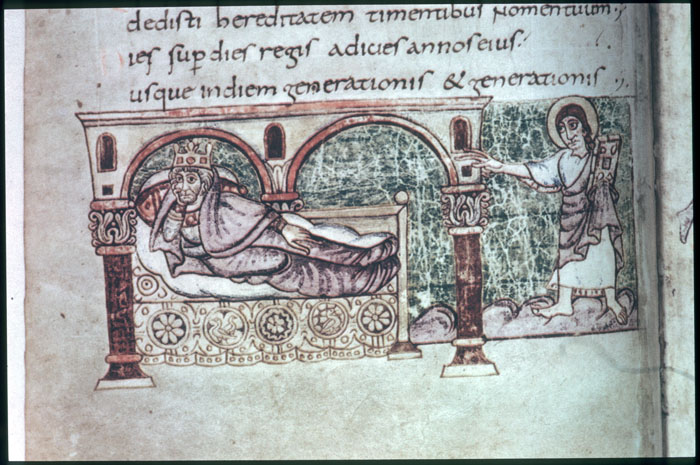 dedisti hereditatem timentibus nomentuum.,
ies sup dies regis adicies annoseius.
usque indiem generationis & generationis .,